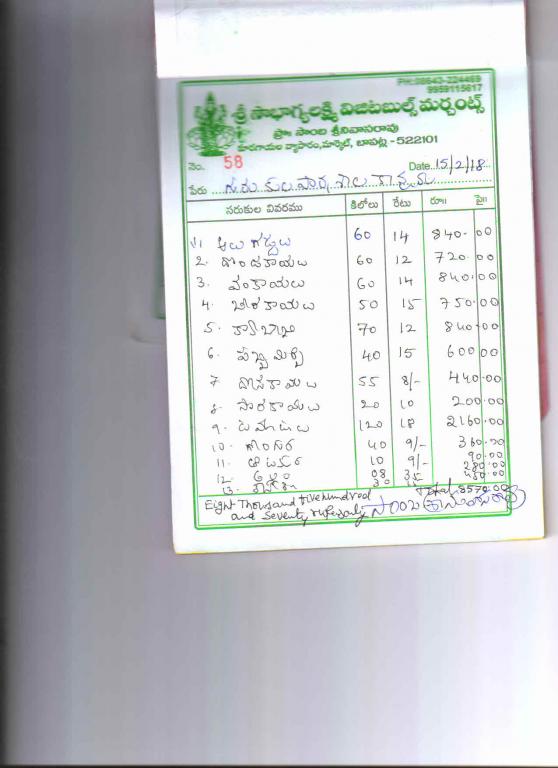 PH:08643-224469
9959115617
శ్రీ సౌభాగ్యలక్ష్మి విజిటబుల్స్ మర్చంట్స్
ప్రొ॥ సాంబ శ్రీనివాసరావు
కూరగాయల వ్యాపారం, మార్కెట్, బాపట్ల - 522101
నెం. 58 Date..15/2/18
పేరు గురుకుల పాఠశాల
సరుకుల వివరము కిలోలు రేటు రూ॥ పై॥
1 ఆలుగడ్డలు 60 14 840.00
2. దొండకాయలు 60 12 720.00
3. వంకాయలు 60 14 840.00
4. బీరకాయలు 50 15 750.00
5. 70 12 840.00
6. పచ్చిమిర్చి 40 15 600.00
7. దోసకాయలు 55 8/- 440.00
8. సొరకాయలు 20 10 200.00
9. టమాటలు 120 18 2160.00
10. గోంగూర 40 9/- 360.00
11. 10 9/- 90.00
12. అల్లం 08 35 280.00
13. 30 450.00
Total 8570.00
Eight Thousand five hundred
and Seventy rupees only